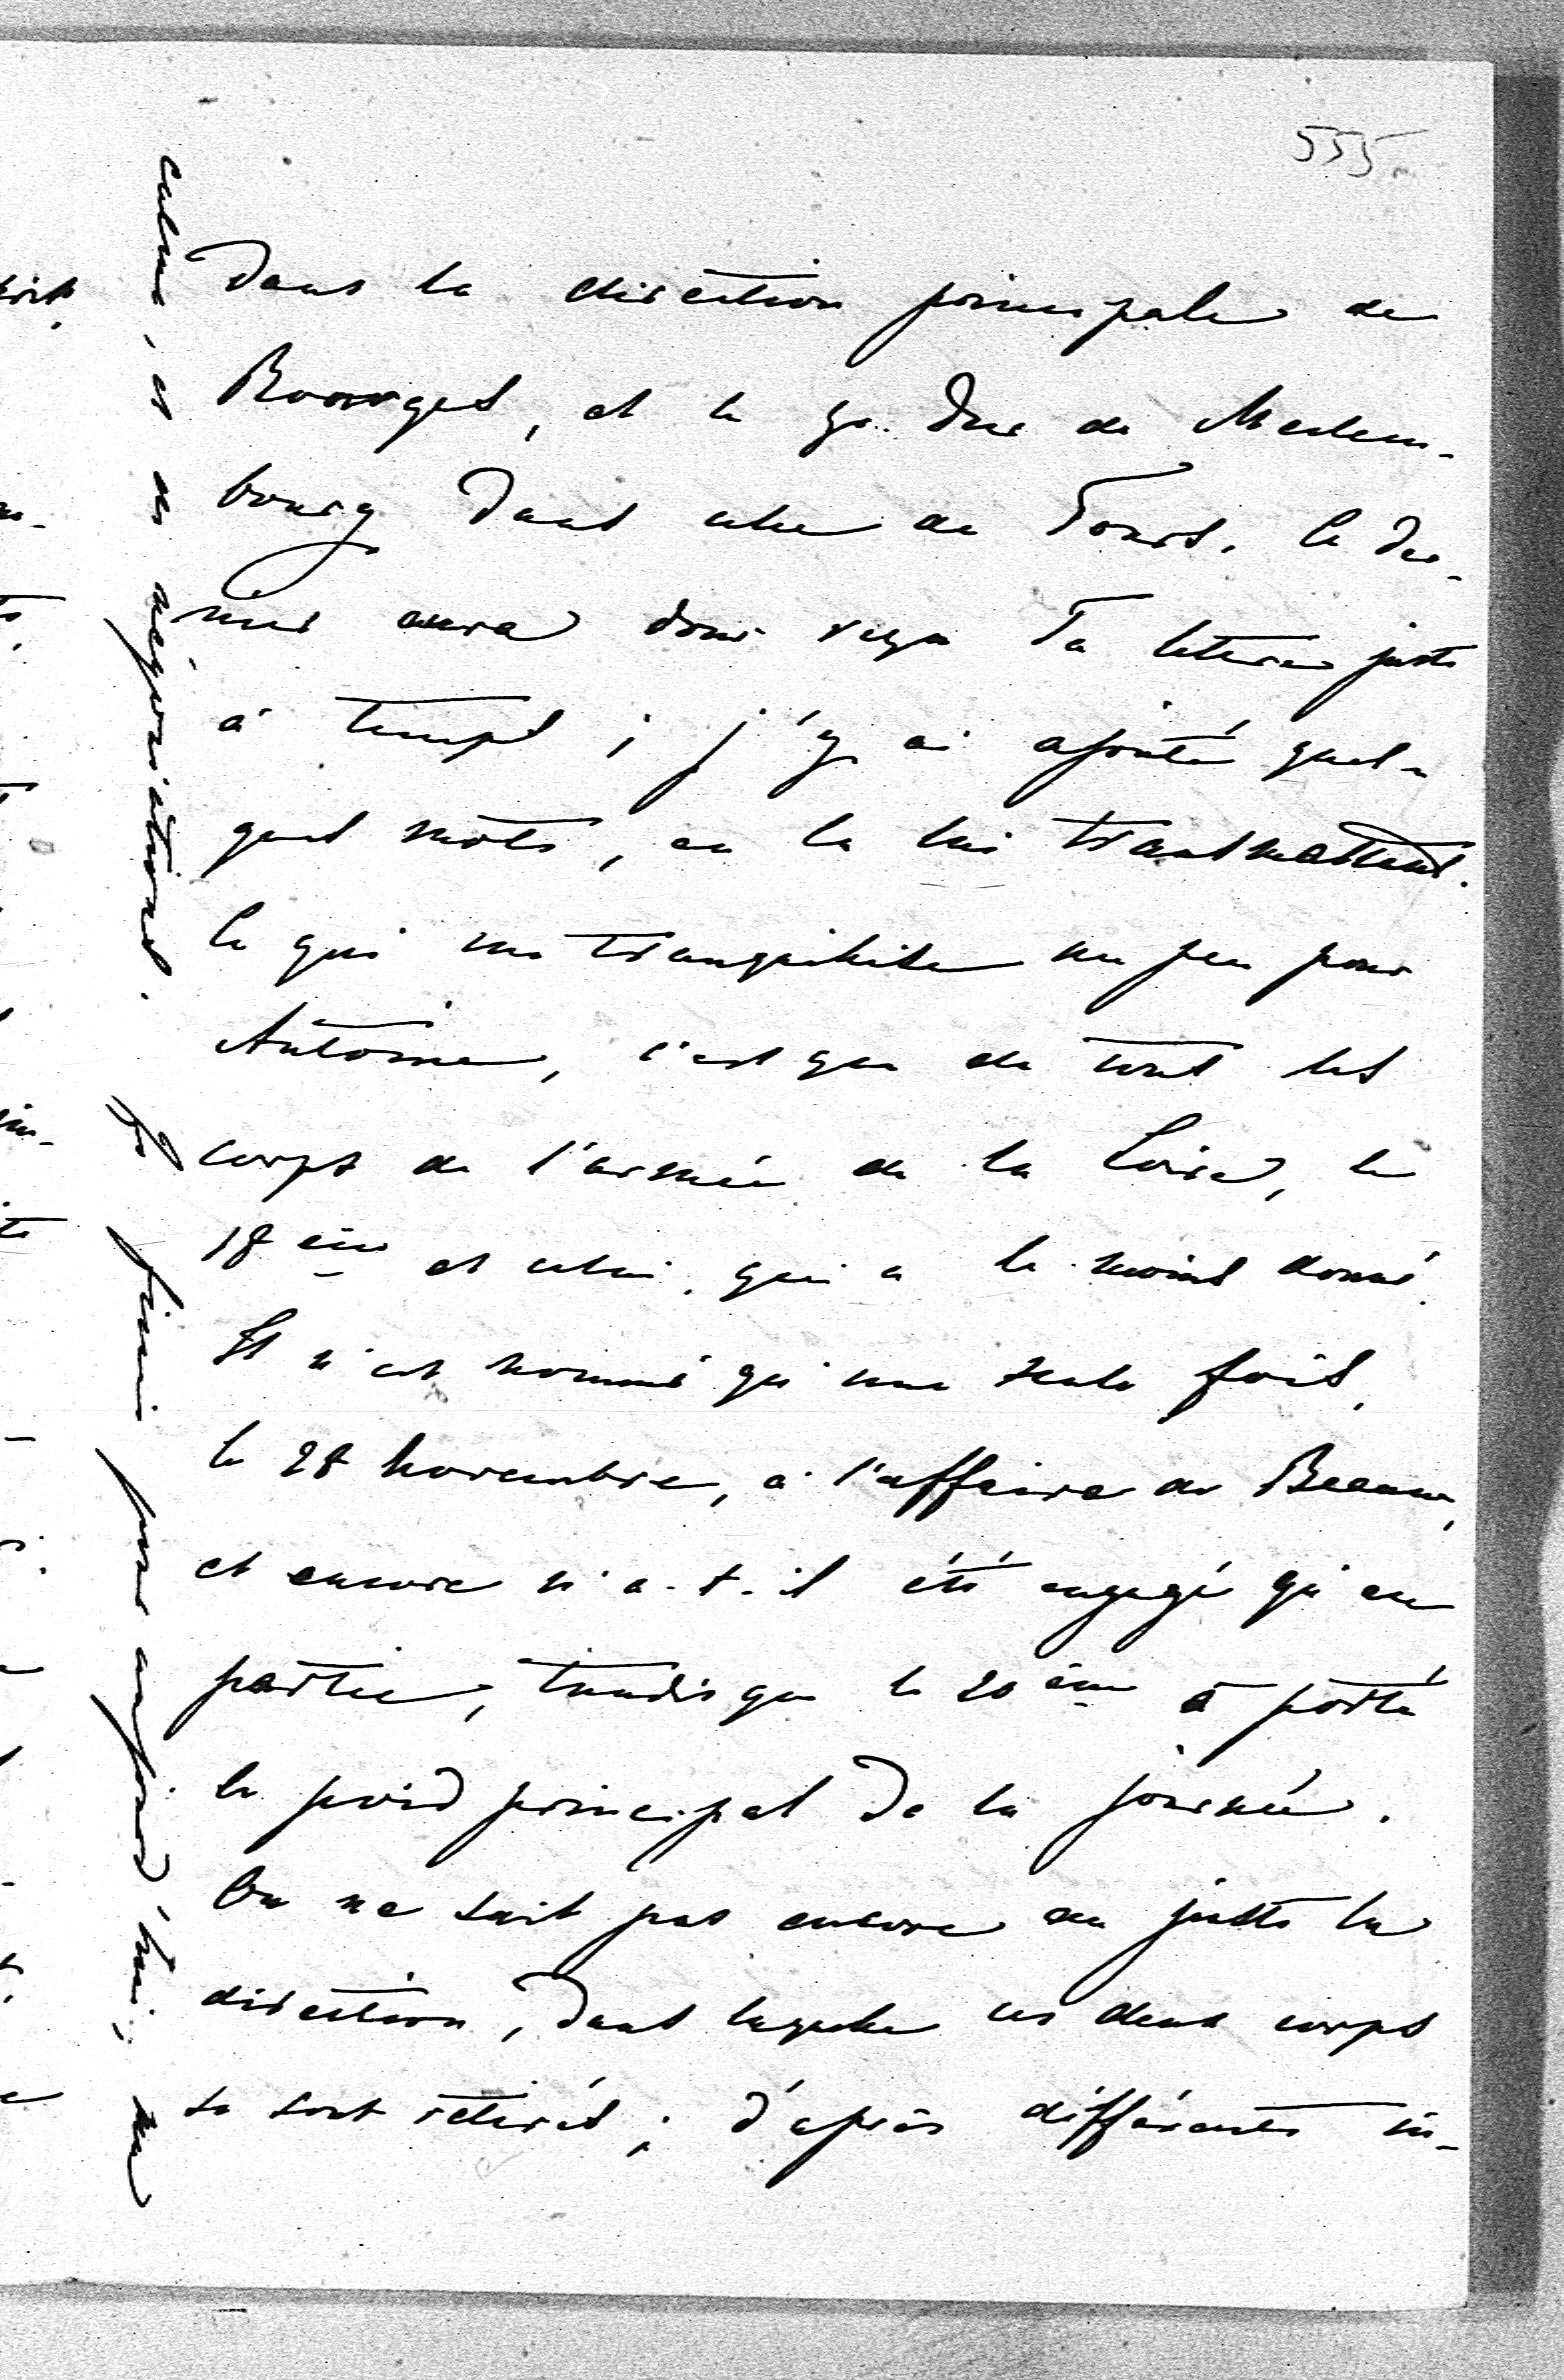 555.
dans la direction principale de
Bourges, et le gr. Duc de Meclem-
bourg dans celle de Tours. Ce der-
nier aura donc reçu Ta lettre juste
à temps ; j'y ai ajouté quel-
ques mots, en la lui transmettant.
Ce qui me tranquilise un peu pour
Antoine, c'est que de tous les
corps de l'armée de la Loire, le
18ème est celui, qui a le moins donné.
Il n'est nommé qu'une seule fois,
le 28 novembre, à l'affaire de Beaune,
et encore n'a-t-il été engagé qu'en
partie, tandis que le 20ème a porté
le poid principal de la journée.
On ne sait pas encore au juste la
direction, dans laquelle ces deux corps
se sont retirés ; d'après différentes in-
calme, et de négociations. Je finis pour aujourd'hui, ma